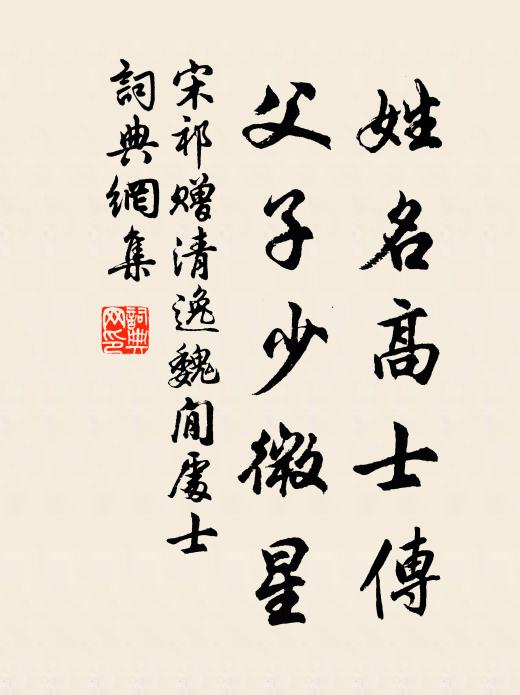 姓名高士傳
父子少微星
宋祁贈清逸魏閒處士
詞典網集
詞典
网印